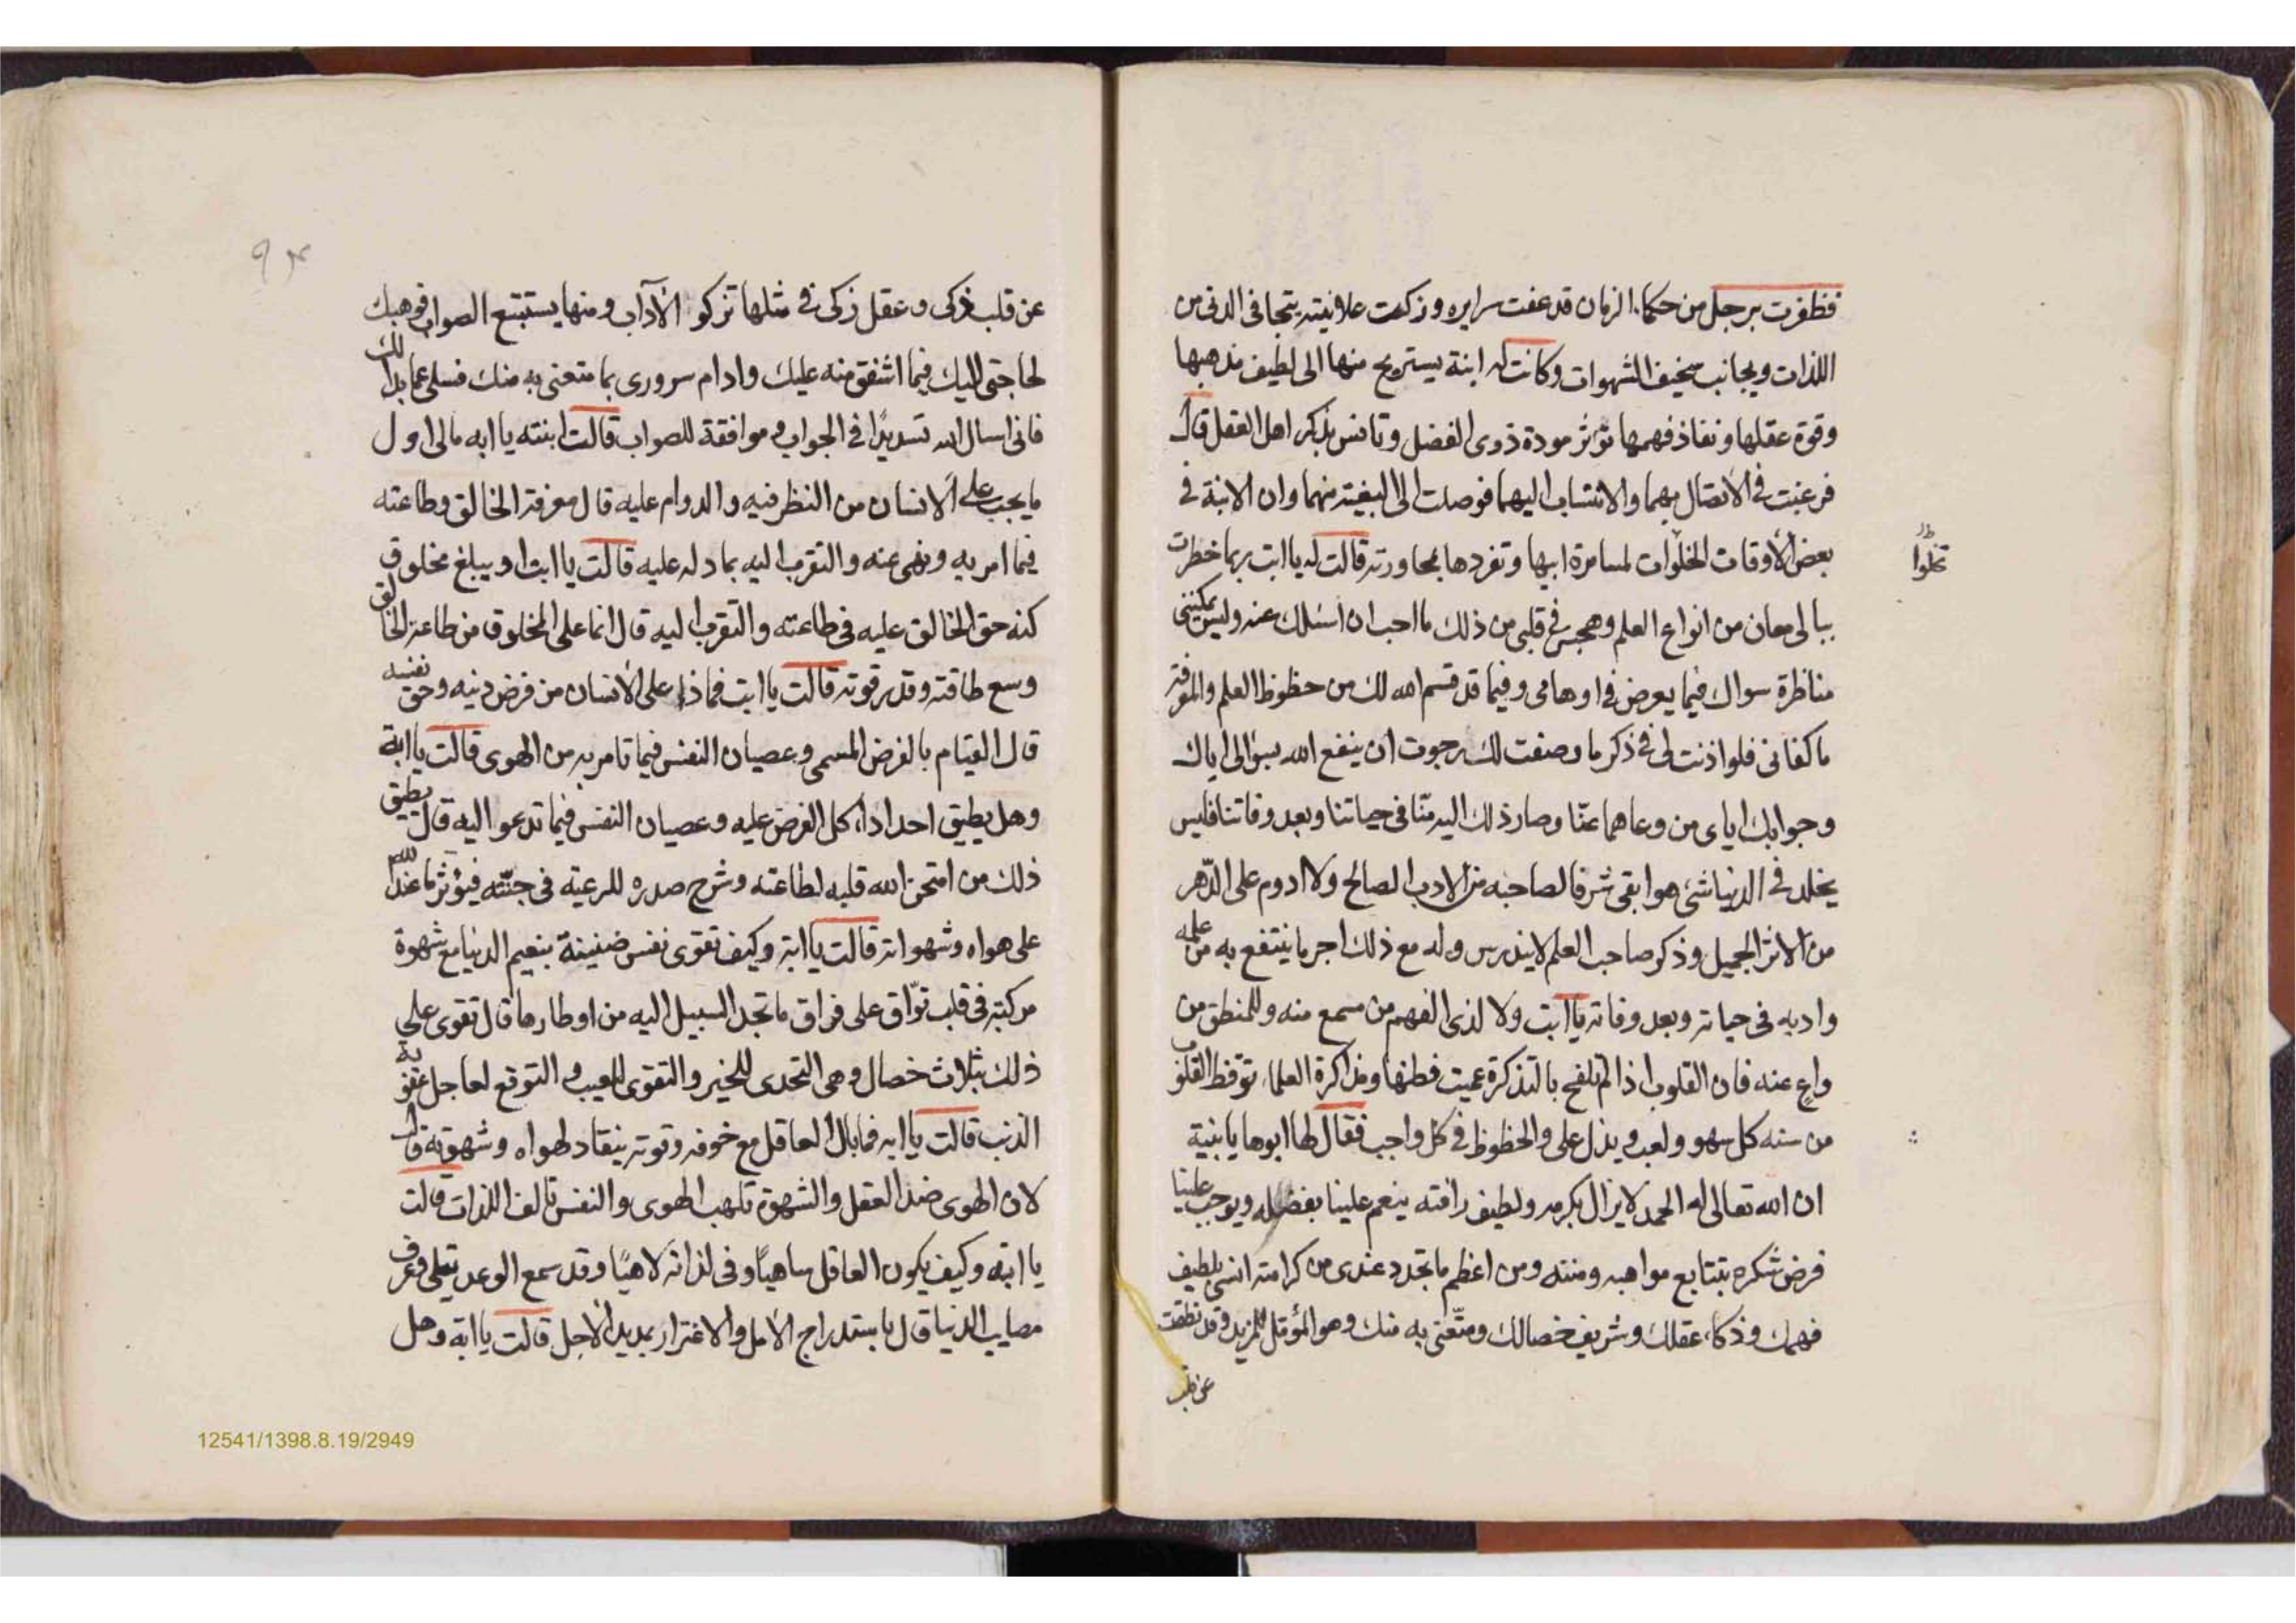 فظفرت برجل من حكماء الزمان قد عفت سرايره وزكت علانيته يتجافى الدنى من
اللذات ويجانب سخيف الشهوات وكانت له ابنة يستريح منها الى لطيف مذهبها
وقوة عقلها ونفاذ فهمها تؤثر مودة ذوى الفضل وتانس بذكر اهل العقل قال
فرغبت في الاتصال بهما والانتساب اليهما فوصلت الى البغية منهما وان الابنة في
بعض الأوقات الخلوات لمسامرة ابيها وتفردها بمحاورته قالت له يا ابت ربما خطرت
تخلوا
ببالى معان من انواع العلم وهجس في قلبى من ذلك ما احب ان اسئلك عنه وليس يمكننى
مناظرة سواك فيما يعرض في اوهامى وفيما قد قسم الله لك من حظوظ العلم والمعرفة
ما كفانى فلو اذنت لى في ذكر ما وصفت لك رجوت ان ينفع الله بسؤالى اياك
وجوابك اياى من وعاهما عنّا وصار ذلك اليه منّا في حياتنا وبعد وفاتنا فليس
يخلد في الدنيا شئ هو ابقى شرفا لصاحبه من الادب الصالح ولا ادوم على الدّهر
من الاثر الجميل وذكر صاحب العلم لا يندرس وله مع ذلك اجر ما ينتفع به من علمه
وادبه في حياته وبعد وفاته يا ابت ولا لذى الفهم من سمع منه وللمنطق من
واع عنه فان القلوب اذا لم تلقح بالتذكرة عميت فطنها ومذاكرة العلماء توقظ القلوب
من سنه كل سهو ولعب ويذل على والحظوظ في كل واجب فقال لها ابوها يا بنية
ان الله تعالى له الحمد لا يزال بكرمه ولطيف رافته ينعم علينا بفضله ويوجب علينا
فرض شكره بتتابع مواهبه ومننه ومن اعظم ما تجدد عندى من كرامته انسى بلطيف
فهمك وذكاء عقلك وشريف خصالك ومتّعنى به منك وهو المؤمّل للمزيد وقد نطقت
عن قلب
عن قلب ذكى وعقل زكى في مثلها تزكو الآداب ومنها يستتبع الصواب فوهبك
لحاجتى اليك فيما اشفق منه عليك وادام سرورى بما متعنى به منك فسلى عما بدا لك
فانى اسال الله تسديدًا في الجواب وموافقة للصواب قالت ابنته يا ابه ما لى اول
ما يجب على الانسان من النظر فيه والدوام عليه قال معرفة الخالق وطاعته
فيما امر به ونهى عنه والتقرب اليه بما دله عليه قالت يا ابت او يبلغ مخلوق
كنه حق الخالق عليه في طاعته والتقرب اليه قال انما على المخلوق من طاعة الخالق
وسع طاقته وقدر قوته قالت يا ابت فماذا على الانسان من فرض دينه وحق نفسه
قال القيام بالفرض المسمى وعصيان النفس فيما تامر به من الهوى قالت يا ابة
وهل يطيق احد اداء كل الفرض عليه وعصيان النفس فيما تدعو اليه قال يطيق
ذلك من امتحن الله قلبه لطاعته وشرح صدره للرعية في جنّته فيؤثر ما عند الله
على هواه وشهواته قالت يا ابة وكيف تقوى نفس ضنينة بنعيم الدنيا مع شهوة
مركبة في قلب توّاق على فراق ما تجد السبيل اليه من اوطارها قال تقوى على
ذلك بثلاث خصال وهى التحدى للخير والتقوى للعيب والتوقع لعاجل عقوبة
الذنب قالت يا ابه فما بال العاقل مع خوفه وقوته ينقاد لهواه وشهوته قال
لان الهوى ضد العقل والشهوة تلهب الهوى والنفس تالف اللذات قالت
يا ابة وكيف يكون العاقل ساهيًا وفى لذاته لاهيًا وقد سمع الوعد يتلى وعرف
مصايب الدنيا قال باستدراج الأمل والاغترار بمديد الأجل قالت يا ابة وهل
12541/1398.8.19/2949